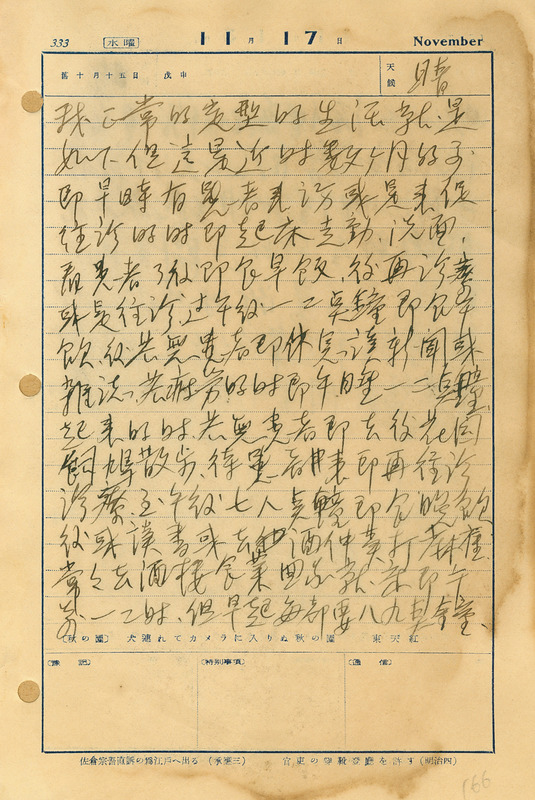 333 [水曜] 11月17日 November
舊十月十五日 戊申 天候 晴
我正常的定型的生活就是
如下但這最近的數ヶ月的事
即早時有患者來訪或是來促
往診的時即起床運動、洗面、
看患者了後即食早飯、後再診察
或是往診、過午後一二点鐘即食午
飯、後若無患者即休息讀新聞或
雜誌、若疲勞的時即午睡一二点鐘
起來的時若無患者即去後花園
飼鳩散步、待患者來即再往診
診療、至午後七八点鐘即食晚飯
後或讀書或去 酒仲 打麻雀
常々去酒樓食菜回家就寢即午
前一二時、但早起每都要八九点鐘、
(秋の灘) 犬連れてカメラに入りぬ秋の灘 東天紅
(雜記) (特別事項) (通信)
佐倉宗吾直訴の爲江戸へ出る (承應三) 官吏の 靴登廳を許す (明治四)
166